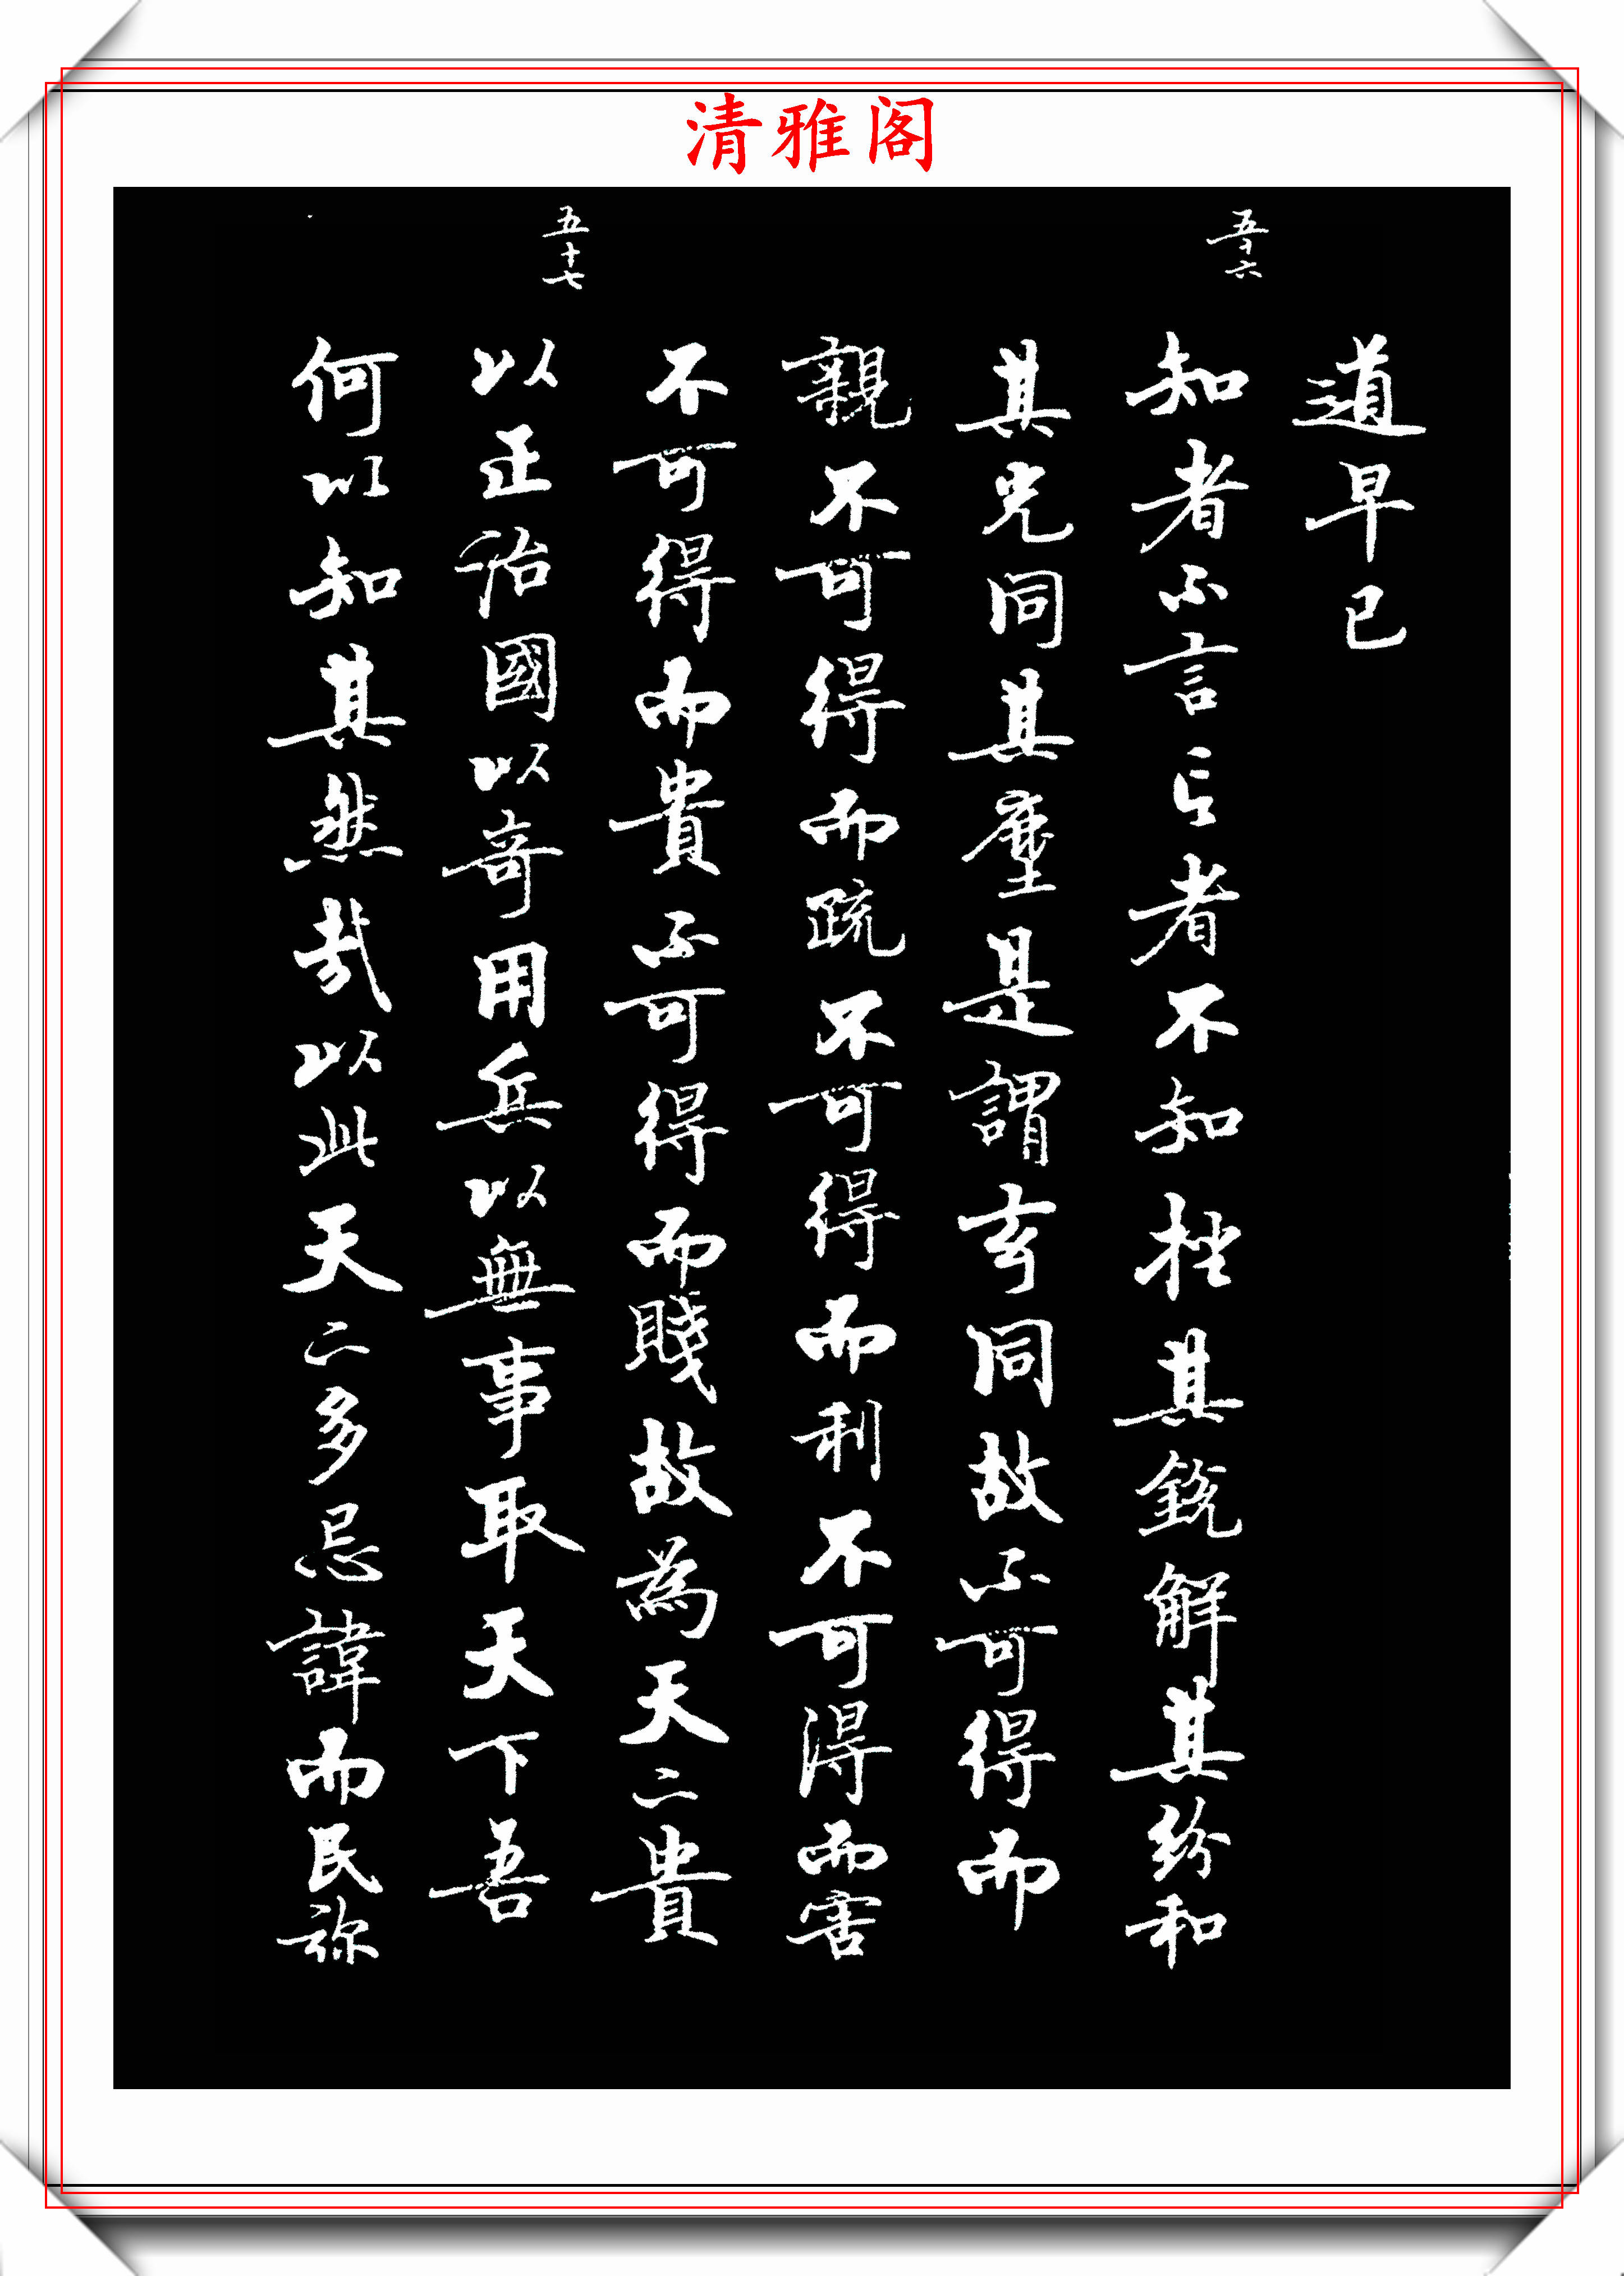 清雅阁
道早已
五十六
知者不言言者不知挫其銳解其紛和
其光同其塵是謂玄同故不可得而
親不可得而疏不可得而利不可得而害
不可得而貴不可得而賤故為天二貴
五十七
以正治國以奇用兵以無事取天下吾
何以知其然哉以此天二多忌諱而民弥